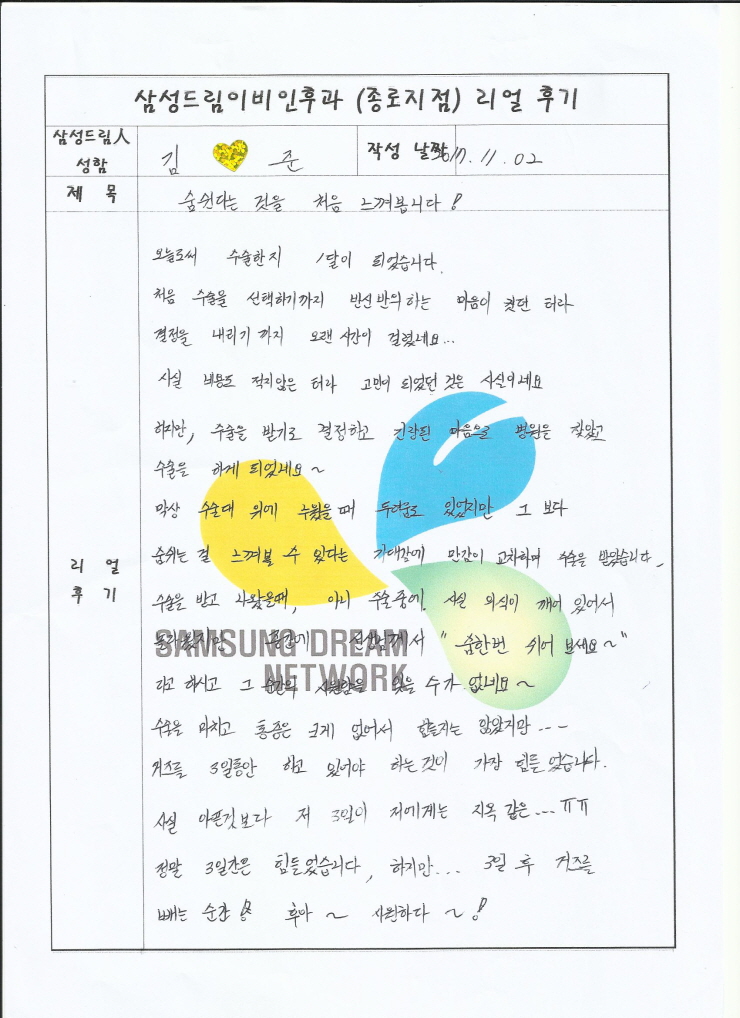 삼성드림이비인후과 (종로지점) 리얼 후기
삼성드림人
성함
김 준
작성 날짜
2017.11.02
제 목
숨쉰다는 것을 처음 느껴봅니다!
리 얼
후 기
오늘로써 수술한지 1달이 되었습니다.
처음 수술을 선택하기까지 반신반의 하는 마음이 컷던 터라
결정을 내리기 까지 오랜 시간이 걸렸네요...
사실 비용도 적지않은 터라 고민이 되었던 것은 사실이네요
하지만, 수술을 받기로 결정하고 긴장된 마음으로 병원을 찾았고
수술을 하게 되었네요~
막상 수술대 위에 누웠을 때 두려움도 있었지만 그 보다
숨쉬는 걸 느껴볼 수 있다는 기대감에 만감이 교차하며 수술을 받았습니다.
수술을 받고 나왔을때, 아니 수술중에. 사실 의식이 깨어 있어서
중간에 선생님께서 "숨한번 쉬어 보세요~"
라고 하시고 그 순간의 시원함을 잊을 수가 없네요~
수술을 마치고 통증은 크게 없어서 힘들지는 않았지만...
거즈를 3일동안 하고 있어야 하는것이 가장 힘들었습니다.
사실 아픈것보다 저 3일이 저에게는 지옥 같은... ㅠㅠ
정말 3일간은 힘들었습니다, 하지만... 3일 후 거즈를
빼는 순간 후아~ 시원하다~!
SAMSUNG DREAM
NETWORK